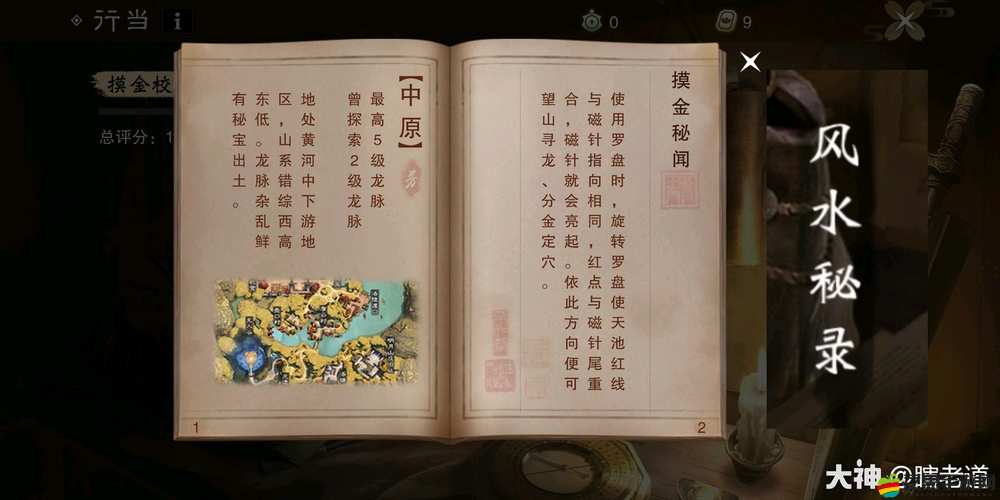 行当
0
9
摸金校
总评分：1
摸金秘闻
使用罗盘时，旋转罗盘使天池红线
与磁针指向相同，红点与磁针尾重
合，磁针就会亮起。依此方向便可
望山寻龙、分金定穴。
2
【中原】
最高5级龙脉
曾探索2级龙脉
地处黄河中下游地
区，山系错综西高
东低。龙脉杂乱鲜
有秘宝出土。
1
风水秘录
大神 @瞎老道